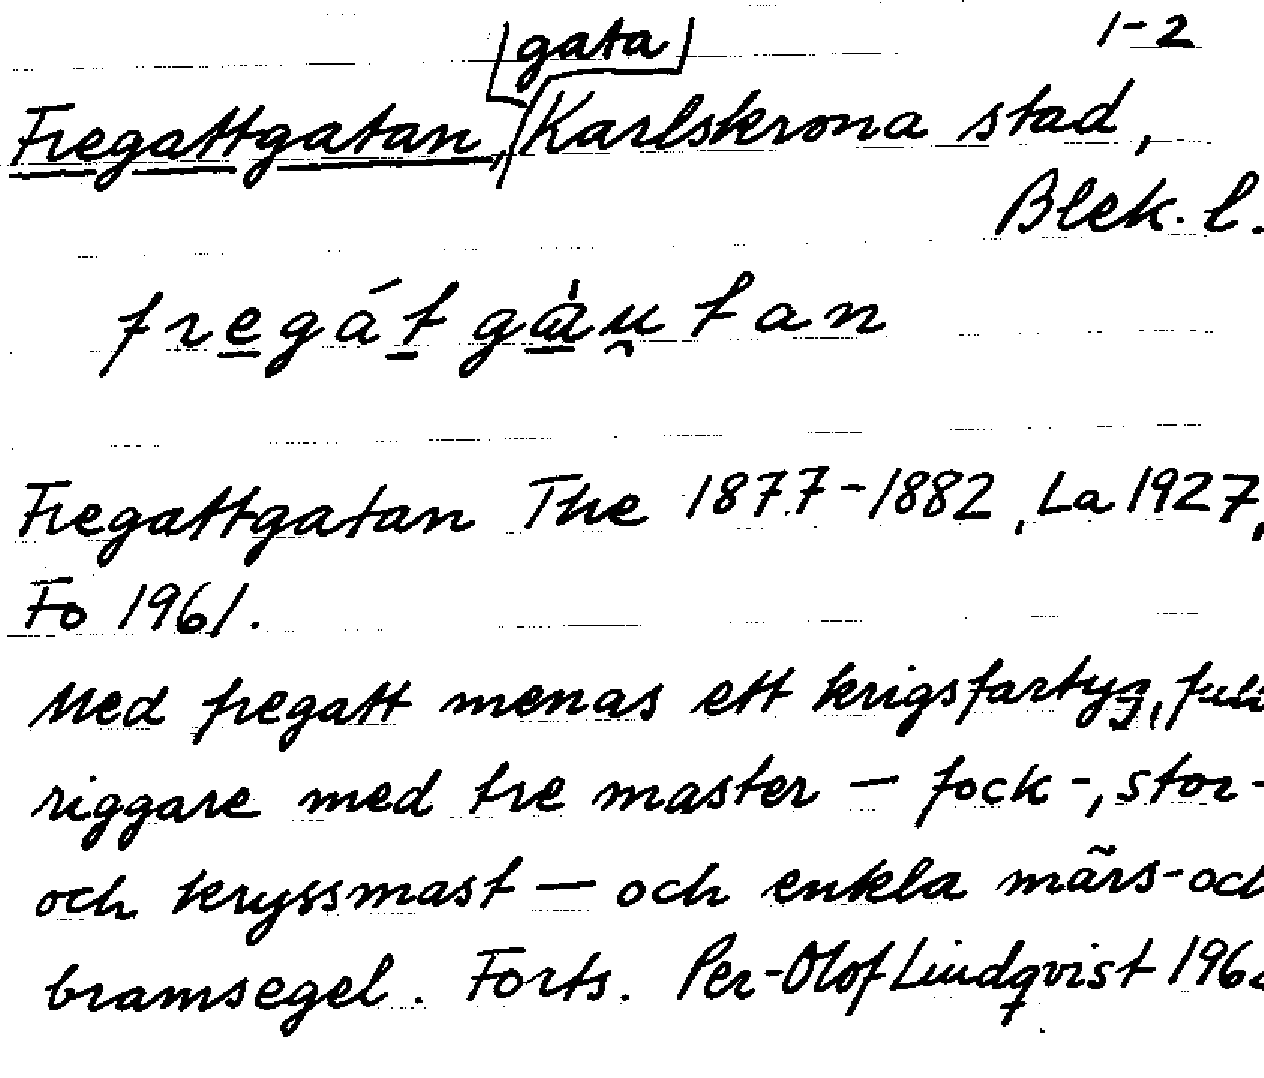 gata 1-2
Fregattgatan, Karlskrona stad,
Blek. l.
fregát gàu̯tan
Fregattgatan The 1877-1882, La 1927,
Fo 1961.
Med fregatt menas ett krigsfartyg, full
riggare med tre master — fock-, stor-
och kryssmast — och enkla märs- och
bramsegel. Forts. Per-Olof Lindqvist